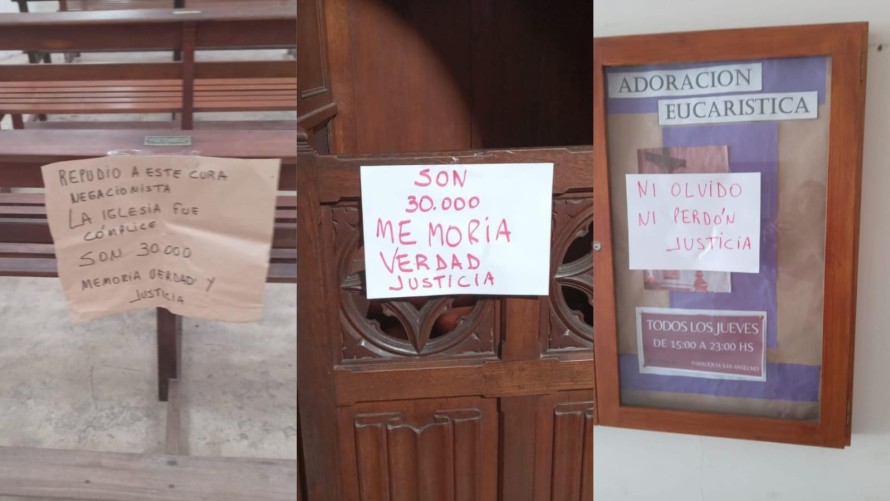 REPUDIO A ESTE CURA
NEGACIONISTA
LA IGLESIA FUE
CÓMPLICE
SON 30.000
MEMORIA VERDAD Y
JUSTICIA
SON
30.000
MEMORIA
VERDAD
JUSTICIA
ADORACION
EUCARISTICA
NI OLVIDO
NI PERDÓN
JUSTICIA
TODOS LOS JUEVES
DE 15:00 A 23:00 HS
PARROQUIA SAN ANSELMO